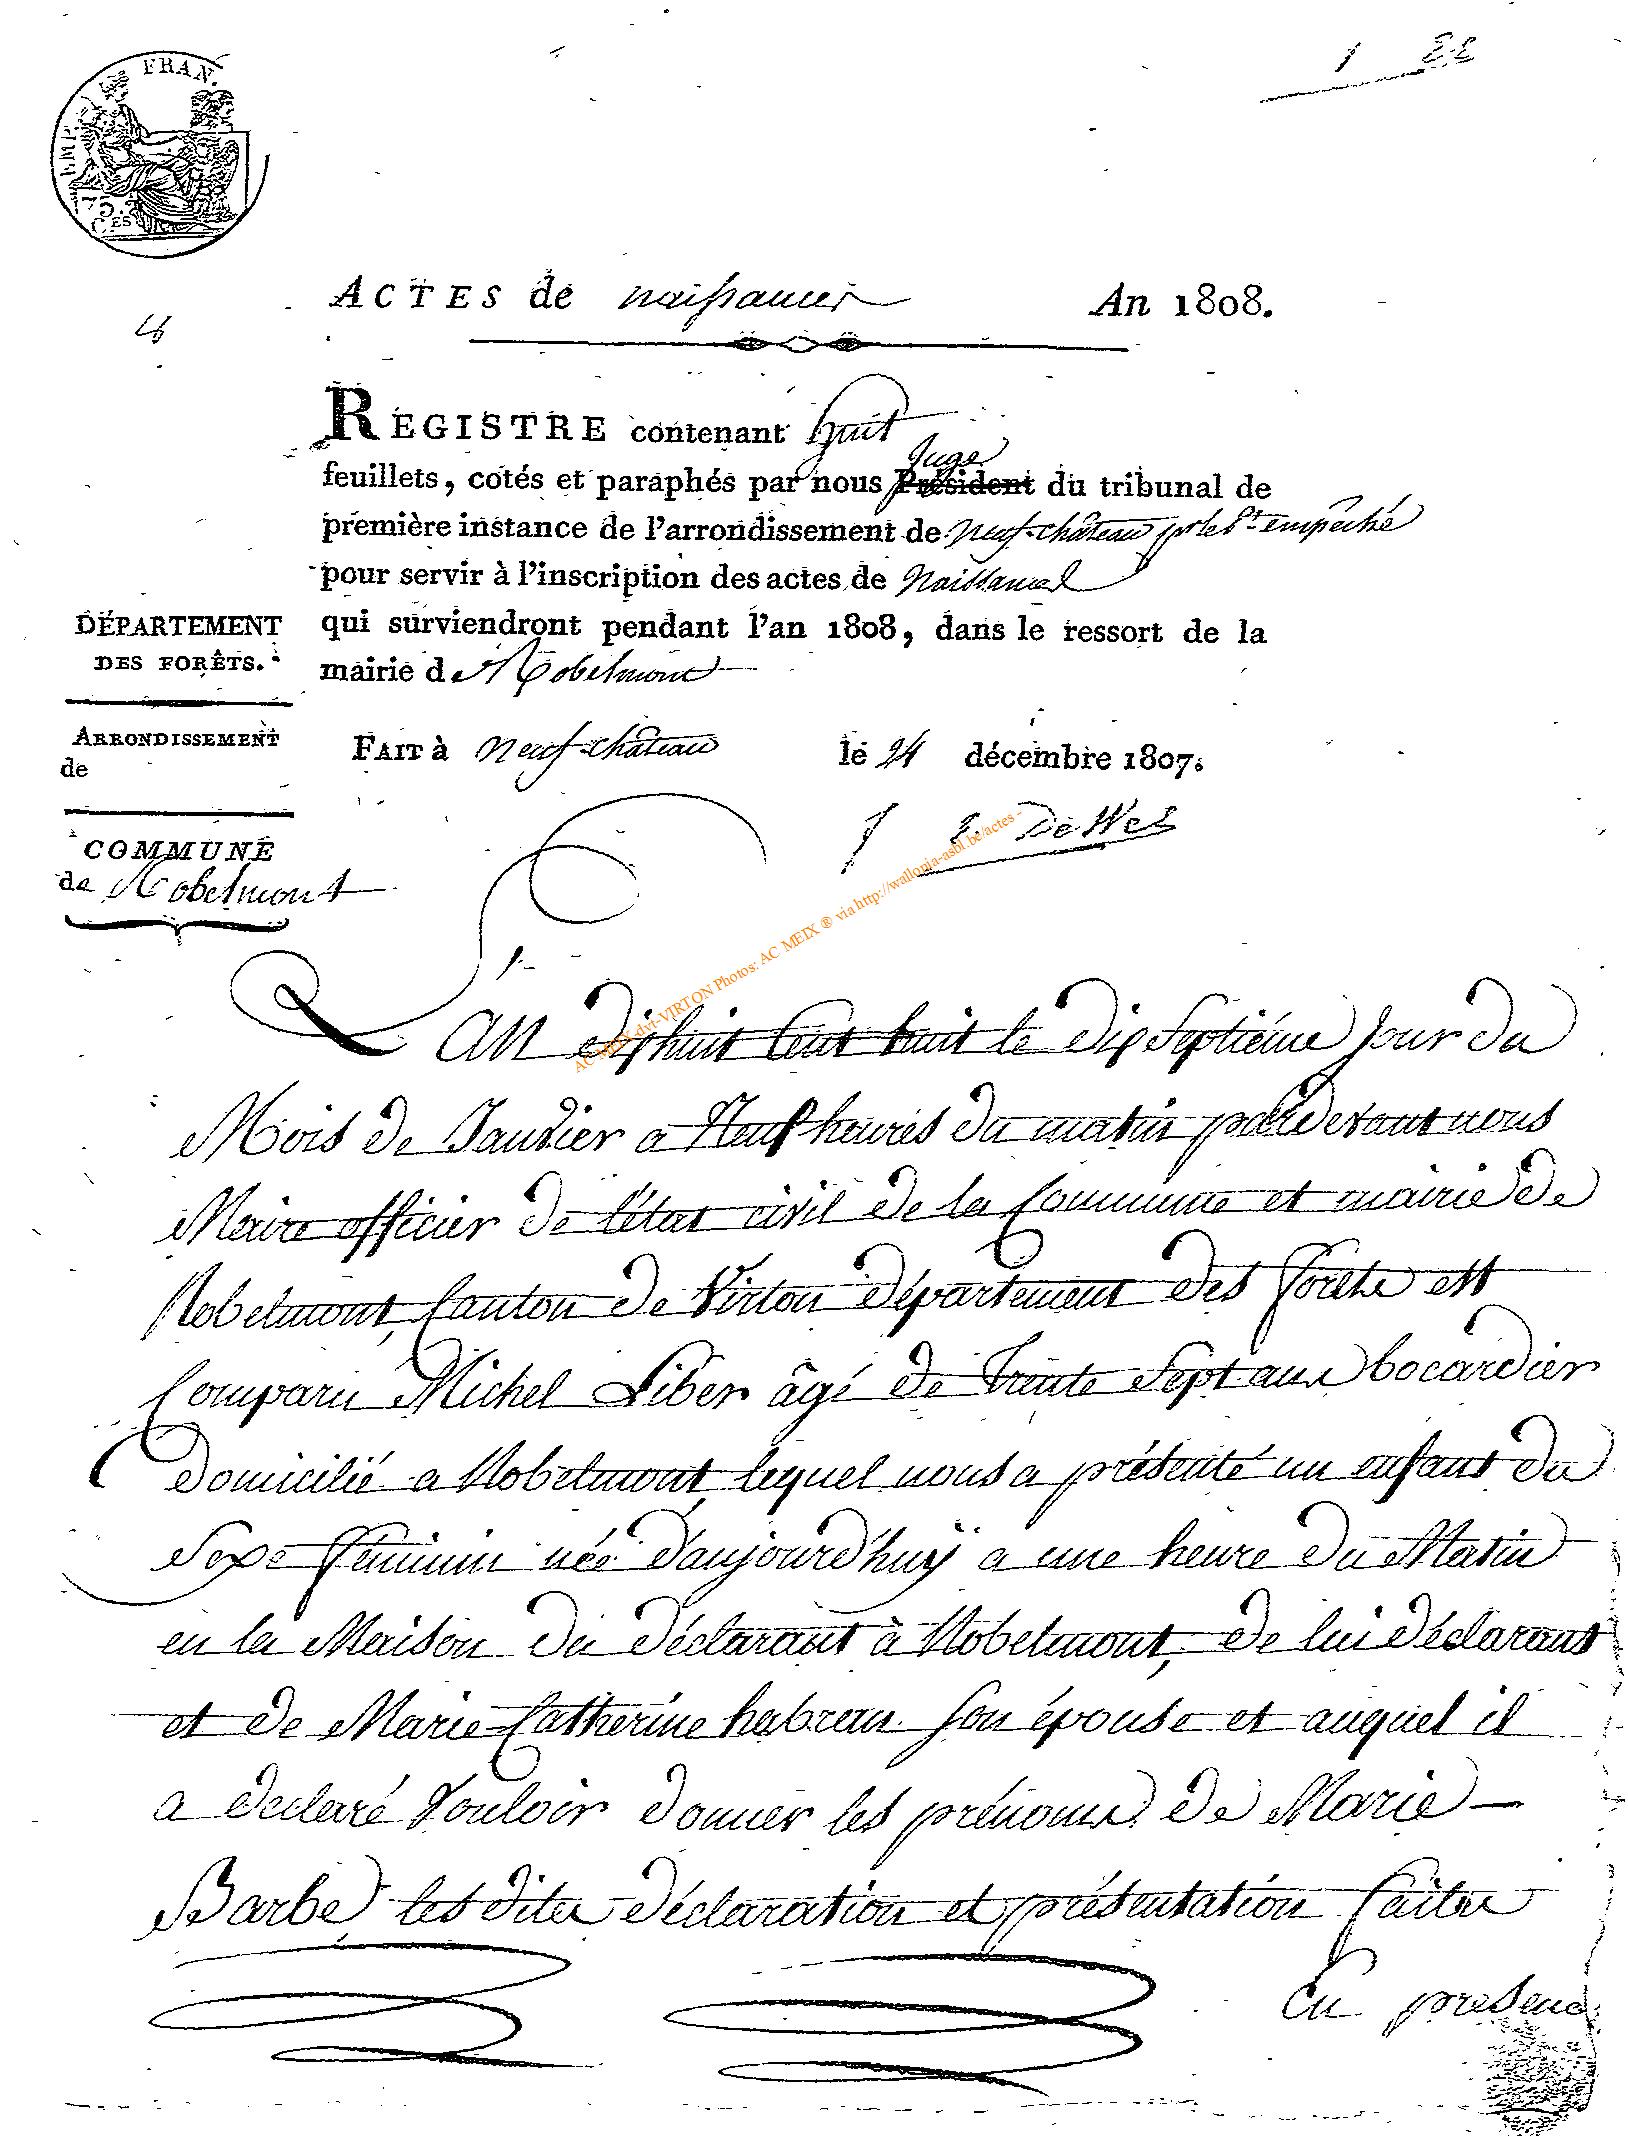 1 22
EMP. FRAN.
75 CES
ACTES de naissances An 1808.
REGISTRE contenant huit
Juge
feuillets, cotés et paraphés par nous Président du tribunal de
première instance de l'arrondissement de Neuf-château pr le Pt empêché
pour servir à l'inscription des actes de Naissances
qui surviendront pendant l'an 1808, dans le ressort de la
mairie de Robelmont
FAIT à Neuf-château le 24 décembre 1807.
DÉPARTEMENT
DES FORÊTS.
ARRONDISSEMENT
de
COMMUNE
de Robelmont
AC MEIX-dvt-VIRTON Photos: AC MEIX ® via http://wallonia-asbl.be/actes -
L'An dix huit Cent huit le dix Septiéme Jour du
Mois de Janvier a Neuf heures du matin par devant nous
Maire officier de l'état civil de la Commune et mairie de
Robelmont, Canton de Virton département des forêts est
Comparu Michel Liber âgé de Trente Sept ans bocardier
domicilié a Robelmont lequel nous a présenté un enfant du
Sexe féminin née d'aujourd'huÿ a une heure du Matin
en la Maison du déclarant à Robelmont, de lui déclarant
et de Marie Catherine habran Son épouse et auquel il
a declaré Vouloir donner les prénoms de Marie —
Barbe les dites déclaration et présentation faites
En presenc